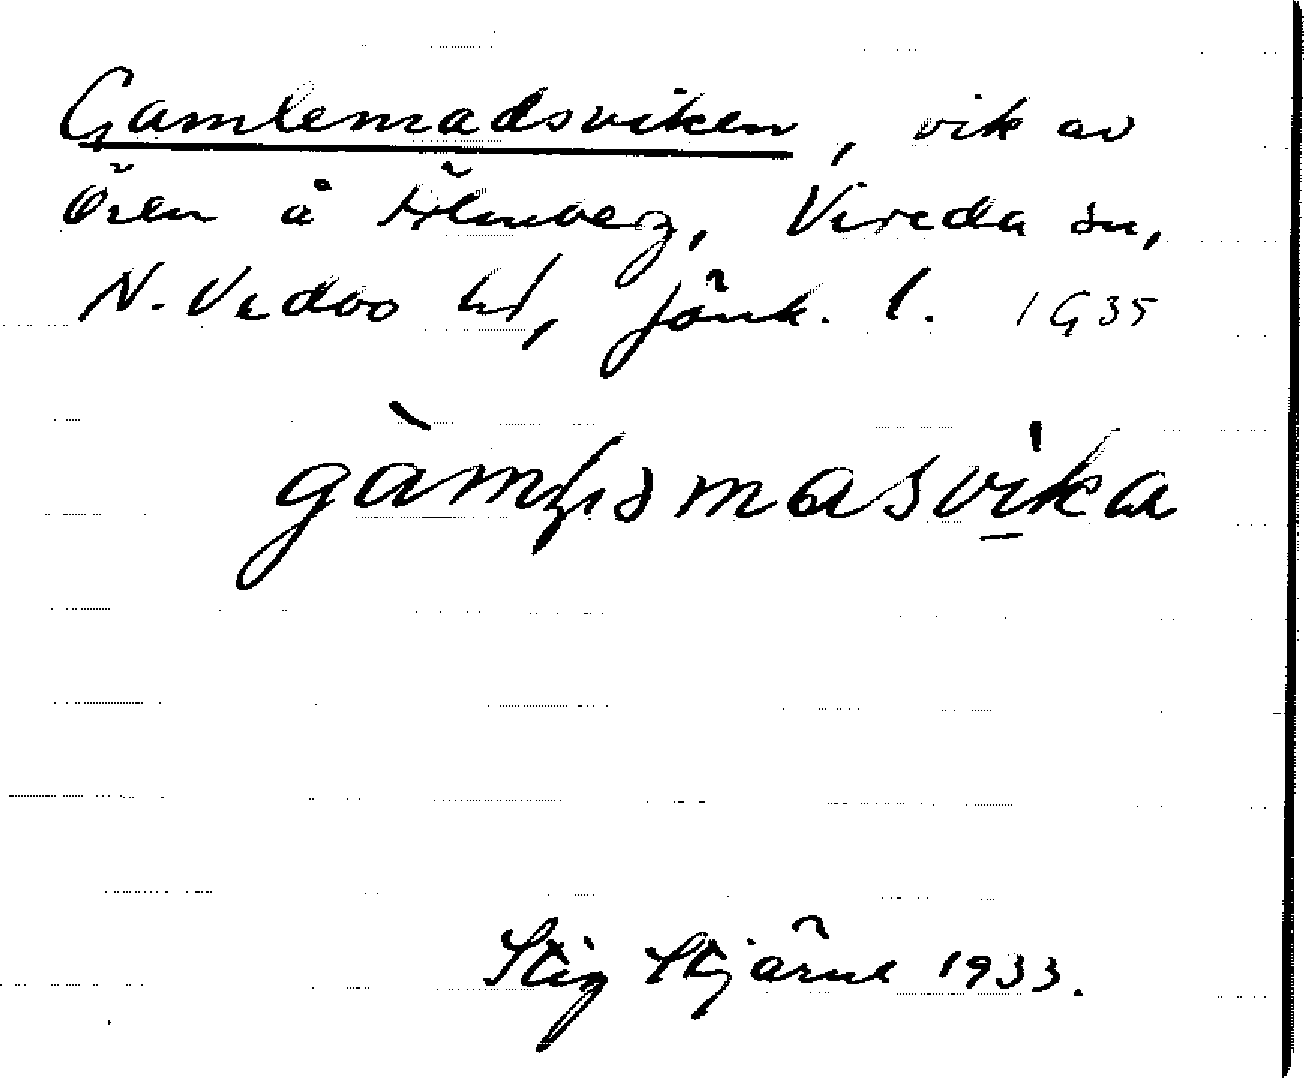 Gamlemadsviken, vik av
Ören å Älmberg, Vireda sn,
N. Vedbo hd, Jönk. l. 1935
gàmlsmasvika
Stig Stjärne 1933.